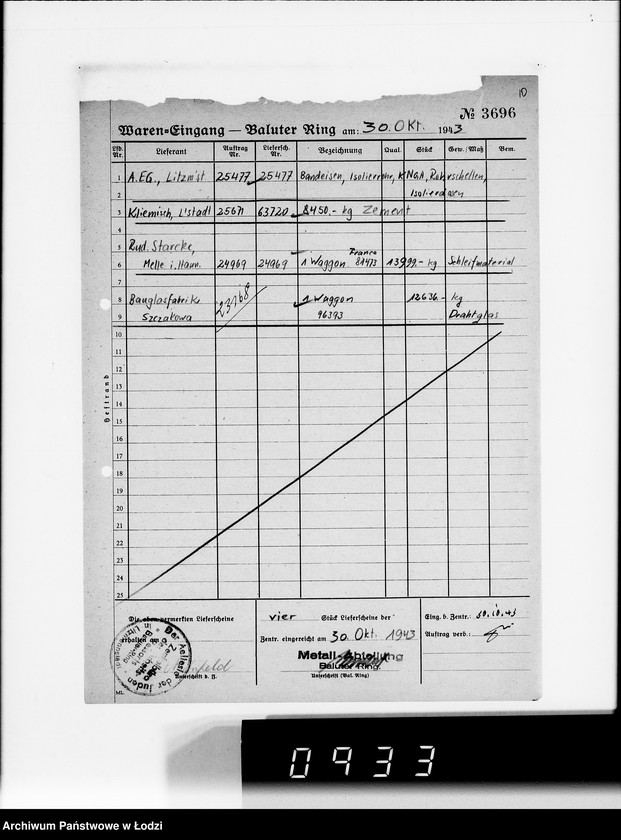 10
№ 3696
Waren=Eingang — Baluter Ring am: 30. Okt. 1943
Lfd. Nr. Lieferant Auftrag Nr. Liefersch. Nr. Bezeichnung Qual. Stück Gew./Maß Bem.
1 A.E.G., Litzm'st 25477 25477 Bandeisen, Isolierrohr, Rohrschellen,
2 Isolier
3 Kliemisch, L'stadt 25671 63720 8450.- kg Zement
4
5 Rud. Starcke,
6 Melle i. Hann. 24969 24969 1 Waggon Franco 81473 13999.- kg Schleifmaterial
7
8 Bauglasfabrik 23168 1 Waggon 12636.- kg
9 Szczakowa 96393 Drahtglas
10
11
12
13
14
15
16
17
18
19
20
21
22
23
24
25
Heftrand
Die oben vermerkten Lieferscheine
erhalten am
Unterschrift d. Z.
Der Aelteste der Juden
in Litzmannstadt
vier Stück Lieferscheine der
Zentr. eingereicht am 30. Okt. 1943
Metall-Abteilung
Baluter Ring.
Unterschrift (Bal. Ring)
Eing. b. Zentr.: 30.10.43
Auftrag verb.:
ML.
0933
Archiwum Państwowe w Łodzi